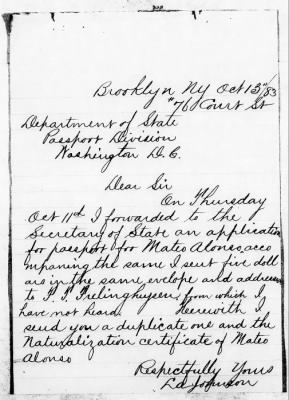 Brooklyn Ny Oct 15th/83
"76 Court St
Department of State
Passport Division
Washington D.C.
Dear Sir
On Thursday
Oct 11th I forwarded to the
Secretary of State an application
for passport for Mateo Alonso, acco
mpaning the same I sent five doll
ars in the same evelope and address
to F. T. Frelinghuysen, from which I
have not heard. Herewith I
send you a duplicate one and the
Naturalization certificate of Mateo
Alonso
Respectfully Yours
Johnson